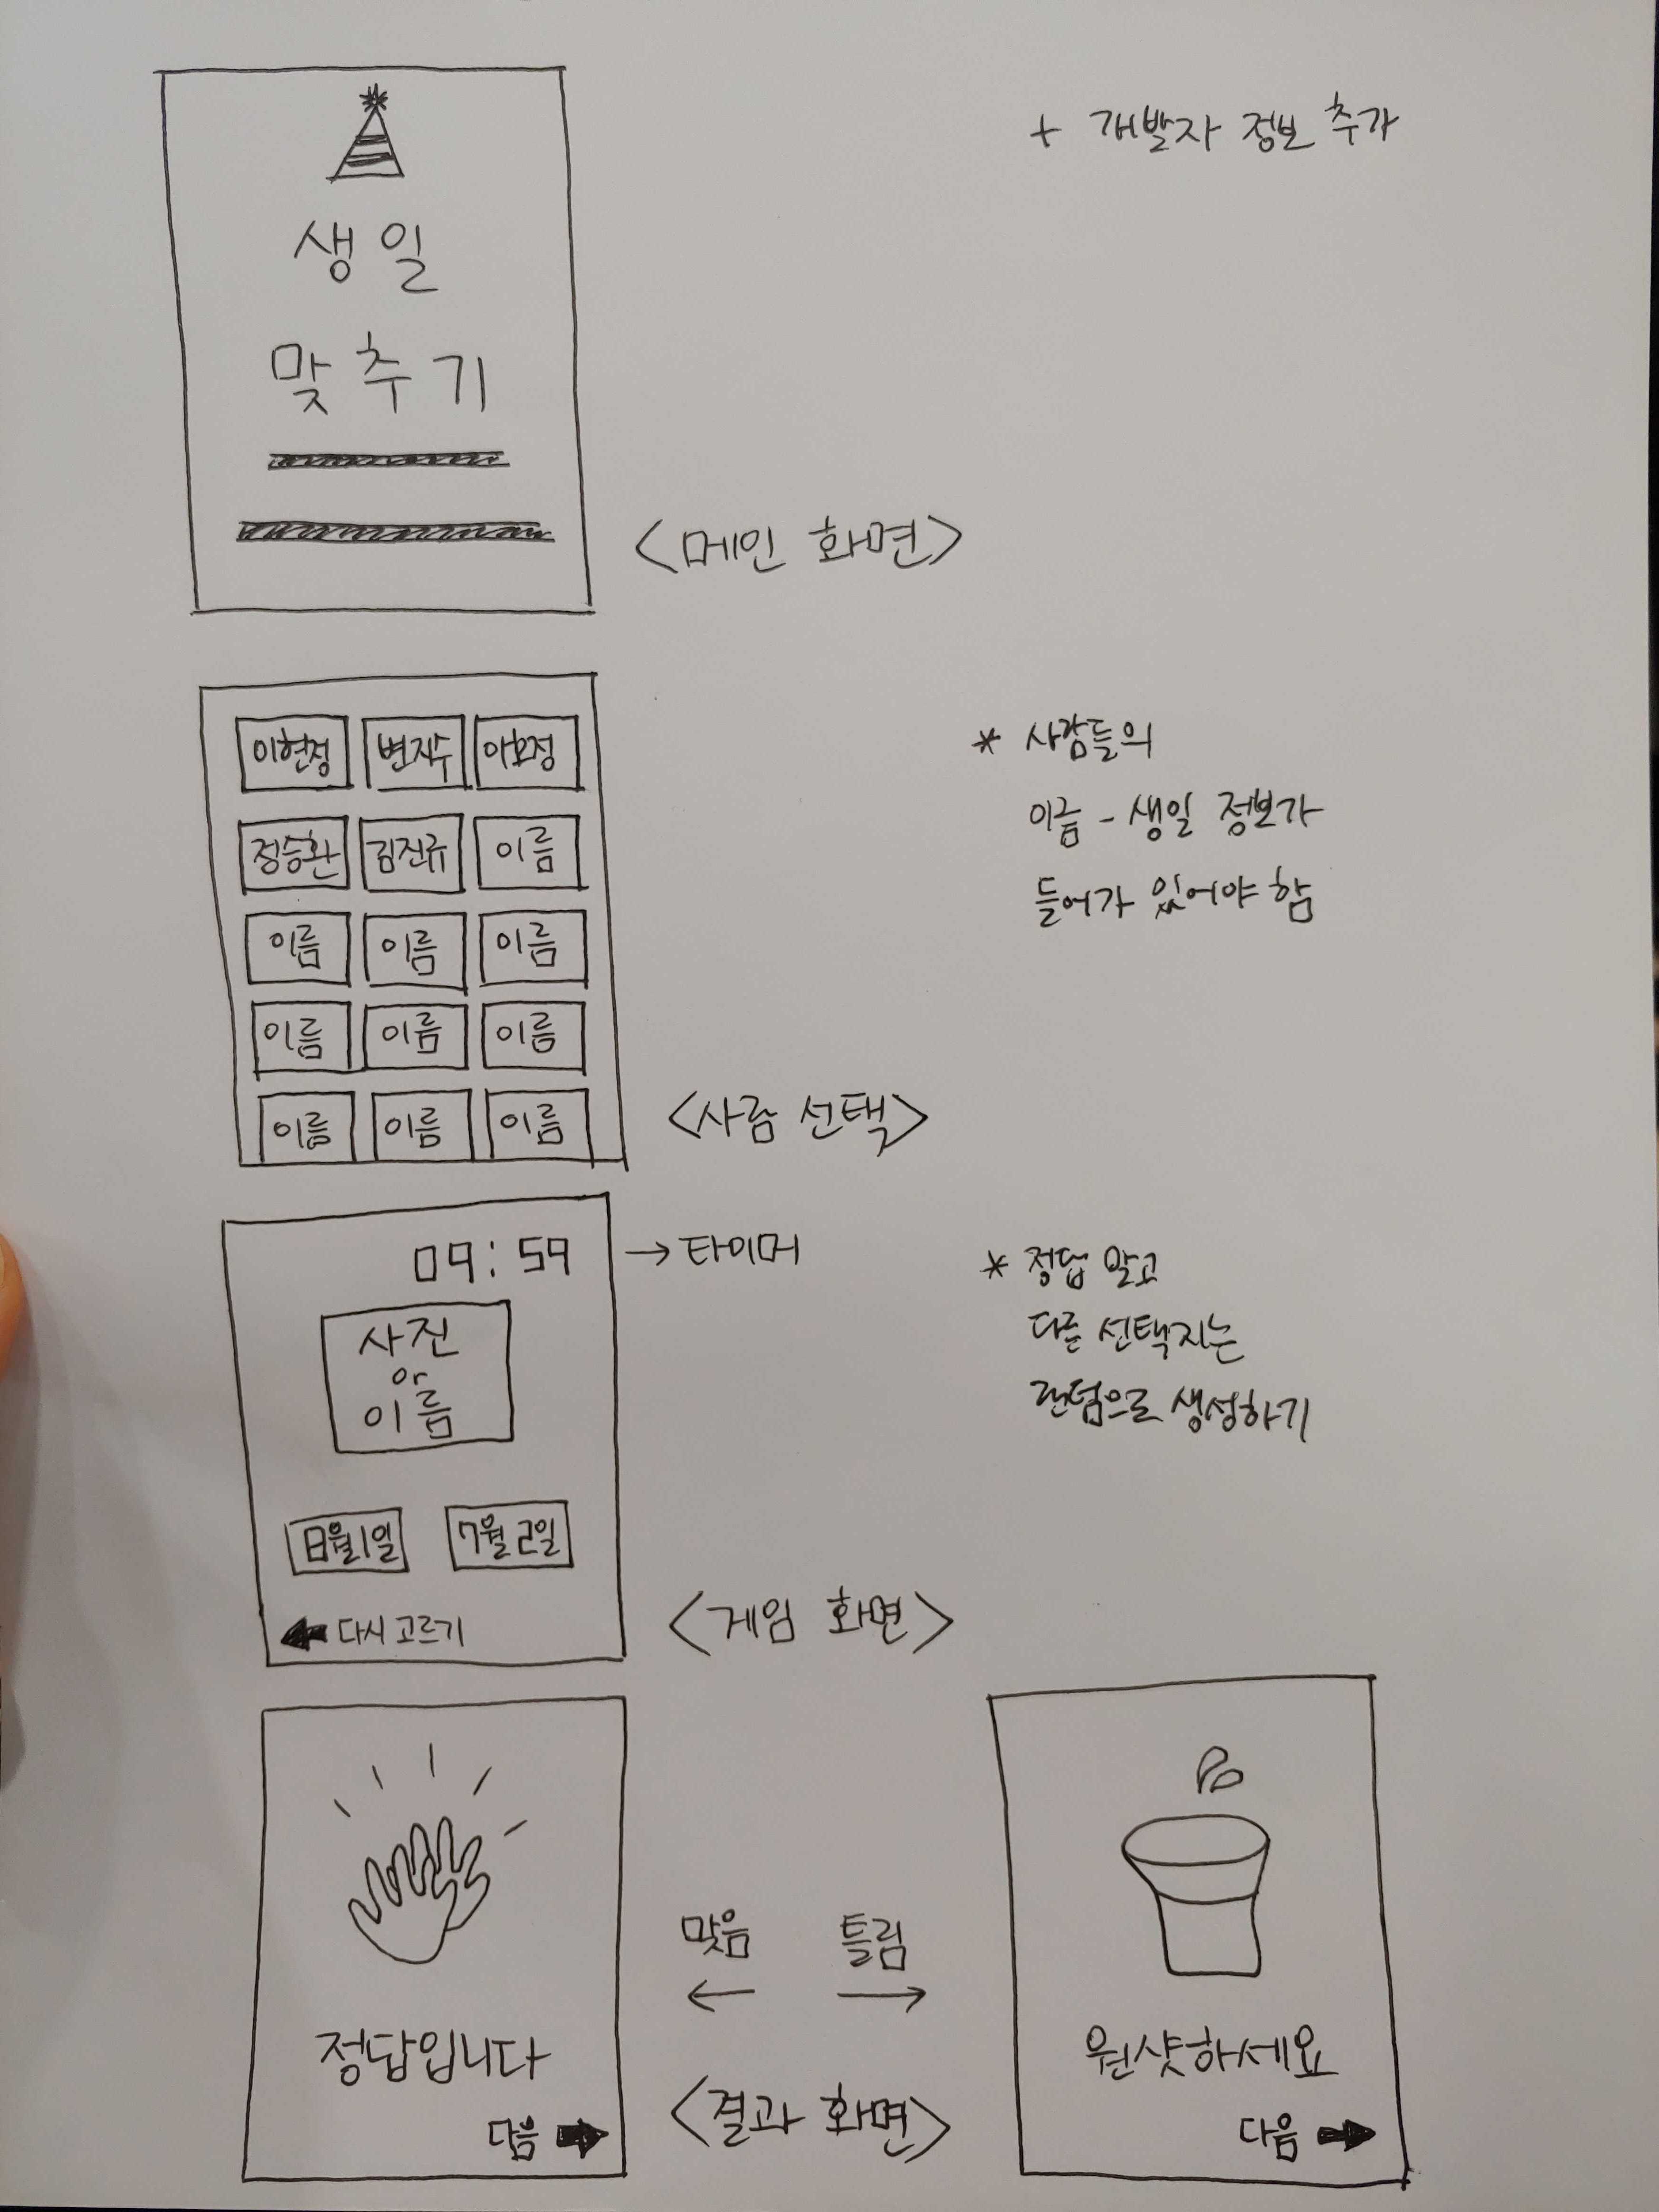 + 개발자 정보 추가
생일
맞추기
<메인 화면>
이현정 변지수 이호정
정승환 김진규 이름
이름 이름 이름
이름 이름 이름
이름 이름 이름
<사람 선택>
* 사람들의
이름 - 생일 정보가
들어가 있어야 함
09:59 → 타이머
사진
or
이름
8월1일 7월2일
← 다시 고르기
<게임 화면>
* 정답 말고
다른 선택지는
랜덤으로 생성하기
정답입니다
다음 →
맞음 틀림
← →
<결과 화면>
원샷하세요
다음 →